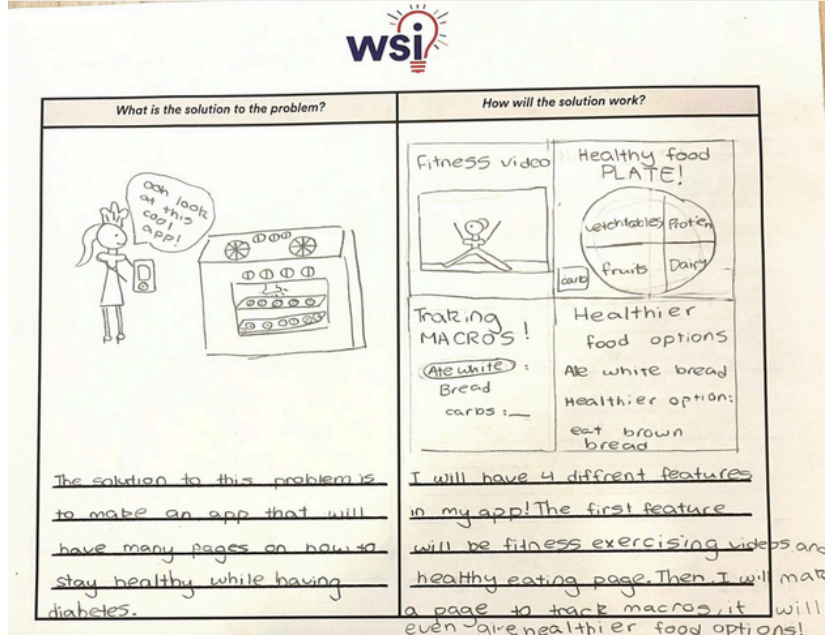 wsi
What is the solution to the problem?
ooh look
at this
cool
app!
The solution to this problem is
to make an app that will
have many pages on how to
stay healthy while having
diabetes.
How will the solution work?
Fitness video
Healthy food
PLATE!
vetchtables
Protien
fruits
Dairy
carb
Traking
MACROS!
Ate white :
Bread
carbs :__
Healthier
food options
Ate white bread
Healthier option:
eat brown
bread
I will have 4 diffrent features
in my app! The first feature
will be fitness exercising videos and
healthy eating page. Then I will mak
a page to track macros, it will
even give healthier food options!